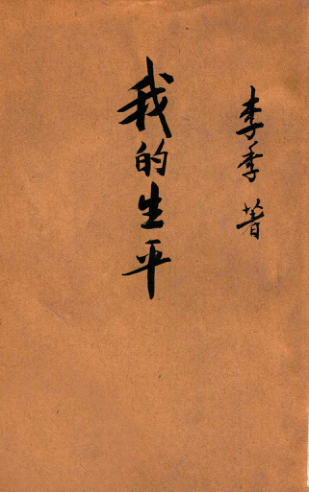 李季著
我的生平